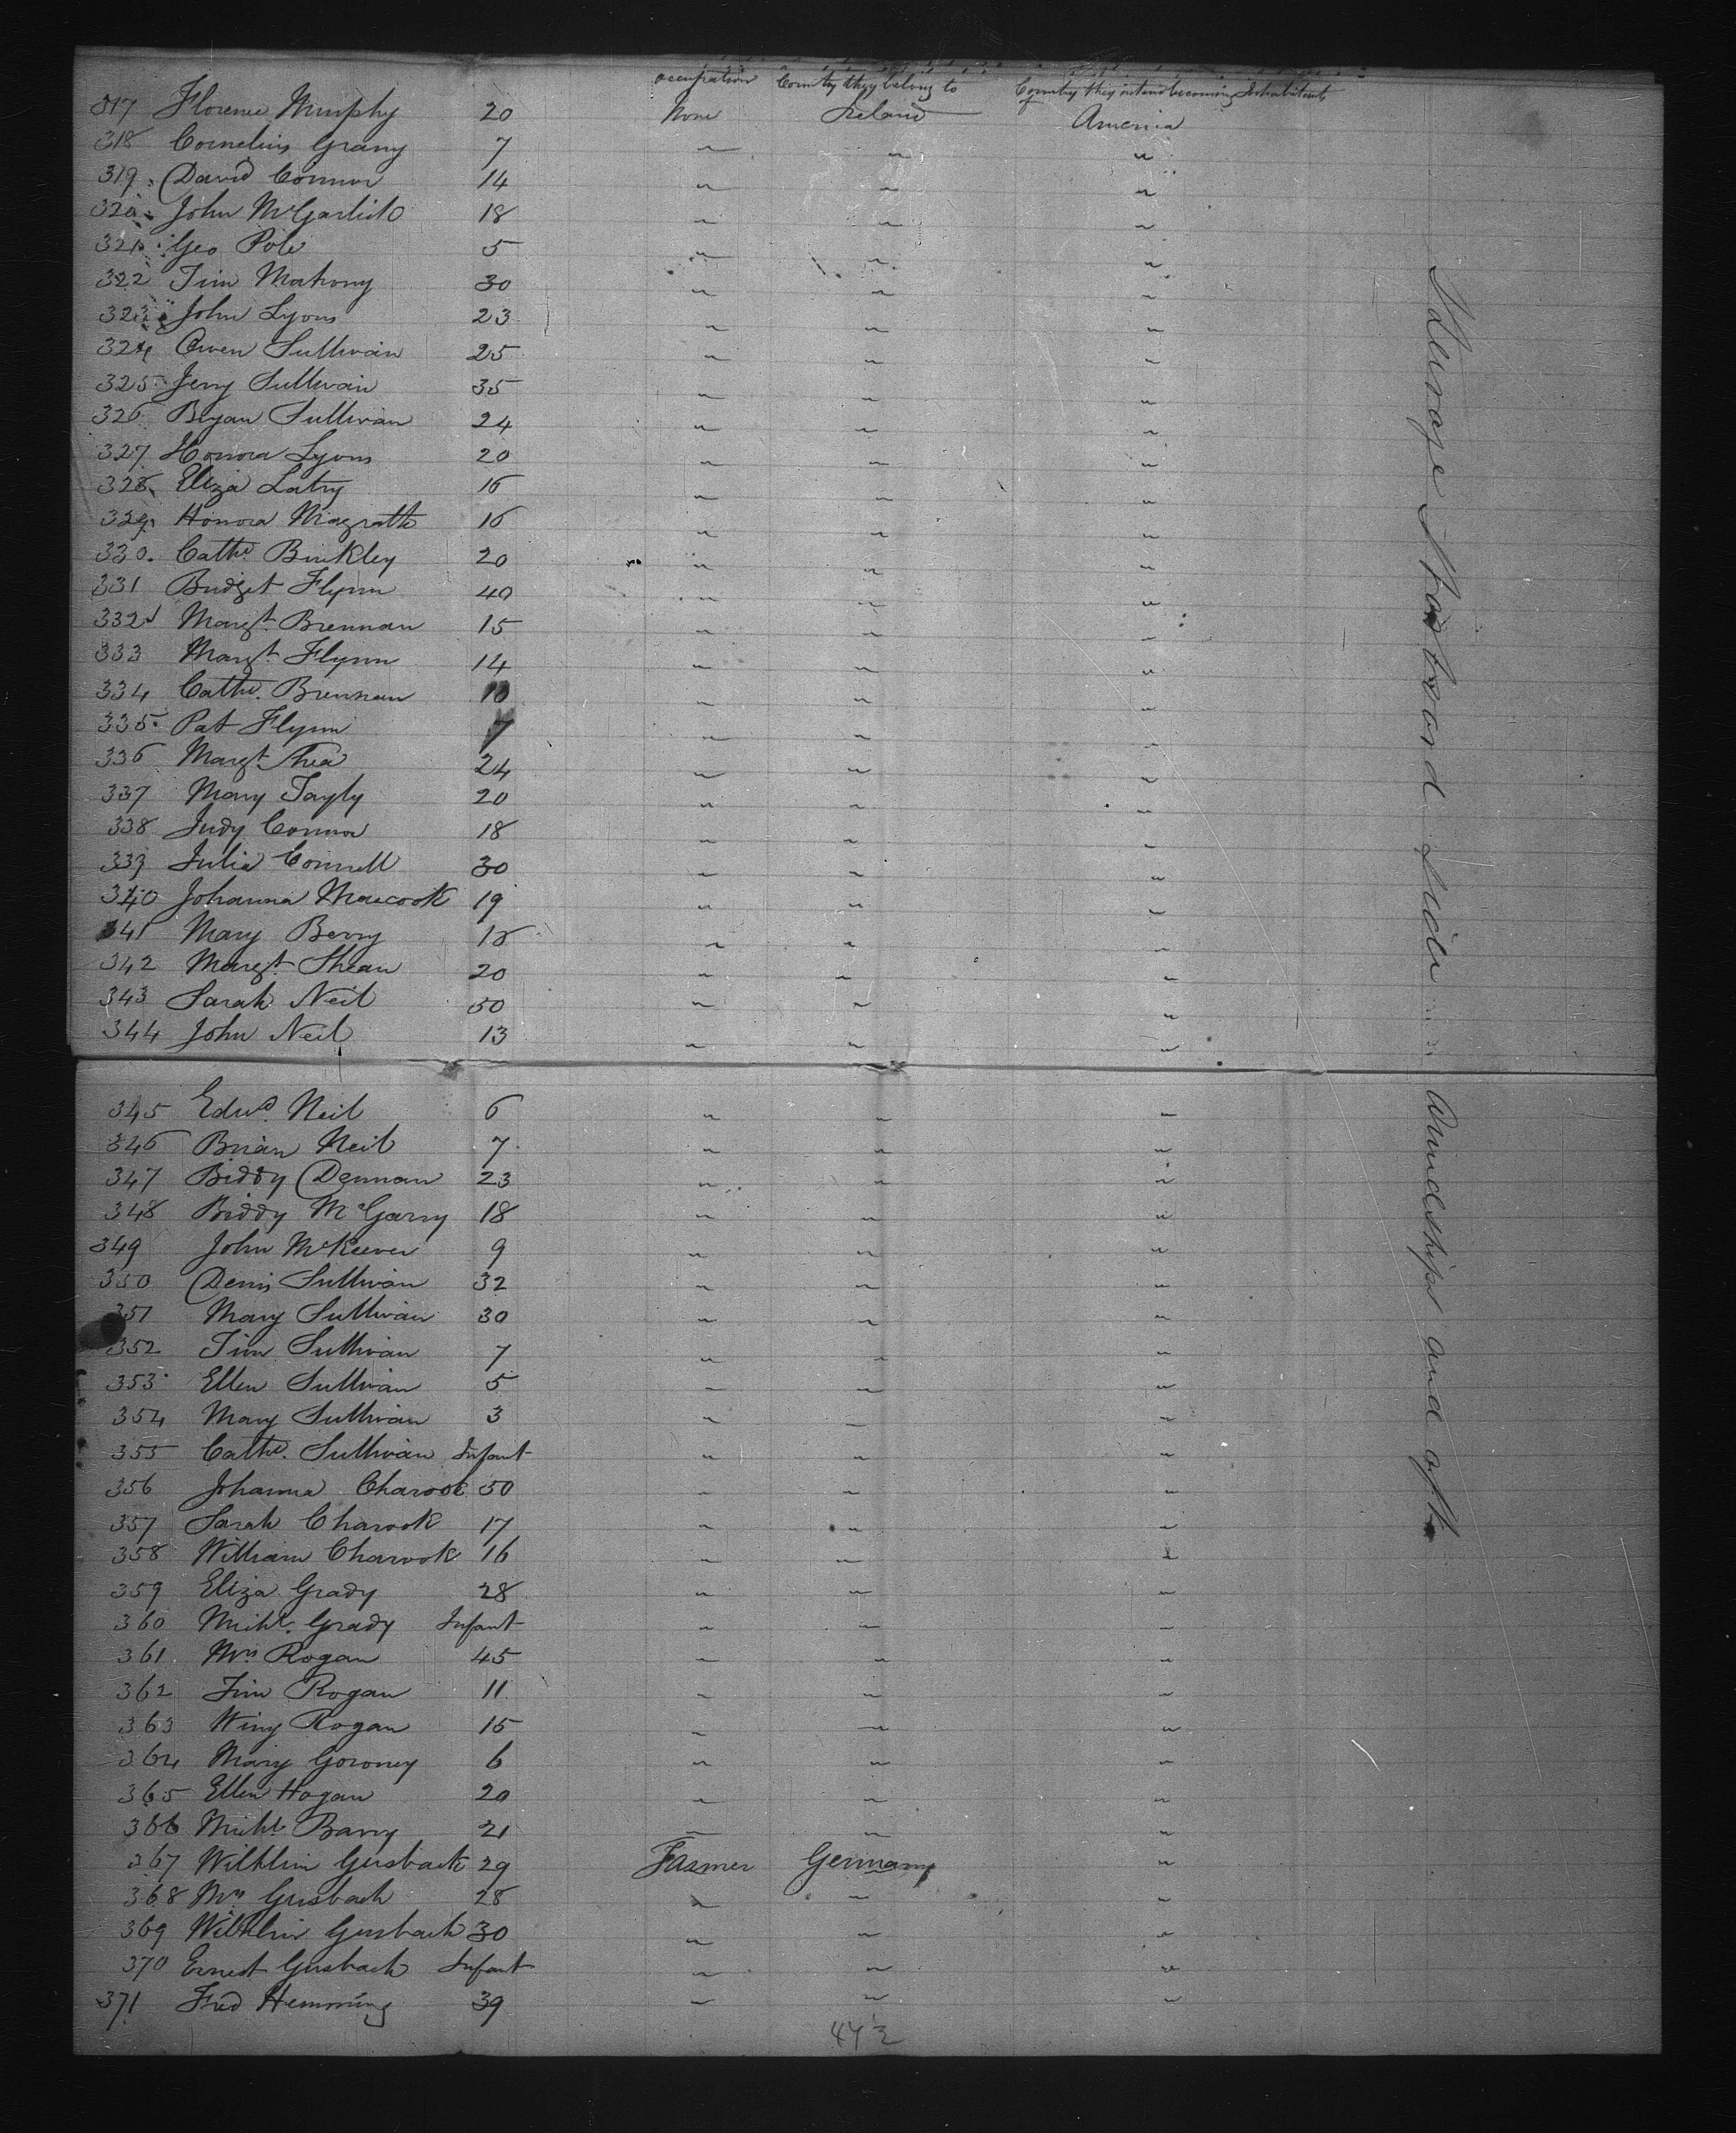 occupation Country they belong to Country they intend becoming Inhabitants of
317 Florence Murphy 20 None Ireland America
318 Cornelius Grany 7 " " "
319 David Connor 14 " " "
320 John McGarlick 18 " " "
321 Geo Pole 5 " " "
322 Tim Mahony 30 " " "
323 John Lyons 23 " " "
324 Owen Sullivan 25 " " "
325 Jerry Sullivan 35 " " "
326 Bryan Sullivan 24 " " "
327 Honora Lyons 20 " " "
328 Eliza Latry 16 " " "
329 Honora Magrath 16 " " "
330 Cathe Binkley 20 " " "
331 Bridget Flynn 40 " " "
332 Margt Brennan 15 " " "
333 Margt Flynn 14 " " "
334 Cathe Brennan 10 " " "
335 Pat Flynn 7 " " "
336 Margt Shea 24 " " "
337 Mary Tayly 20 " " "
338 Judy Connor 18 " " "
339 Julia Connell 30 " " "
340 Johanna Maccook 19 " " "
341 Mary Berry 18 " " "
342 Margt Shean 20 " " "
343 Sarah Neil 50 " " "
344 John Neil 13 " " "
345 Edwd Neil 6 " " "
346 Brian Neil 7 " " "
347 Biddy Dennan 23 " " "
348 Biddy McGarry 18 " " "
349 John McKeever 9 " " "
350 Denis Sullivan 32 " " "
351 Mary Sullivan 30 " " "
352 Tim Sullivan 7 " " "
353 Ellen Sullivan 5 " " "
354 Mary Sullivan 3 " " "
355 Cathe Sullivan Infant " " "
356 Johanna Charook 50 " " "
357 Sarah Charook 17 " " "
358 William Charook 16 " " "
359 Eliza Grady 28 " " "
360 Michl Grady Infant " " "
361 Mrs Rogan 45 " " "
362 Jim Rogan 11 " " "
363 Winy Rogan 15 " " "
364 Mary Goroney 6 " " "
365 Ellen Hogan 20 " " "
366 Michl Barry 21 " " "
367 Wilhlim Gusback 29 Farmer Germany "
368 Mrs Gusbach 28 " " "
369 Wilhlim Gusbach 30 " " "
370 Ernest Gusbach Infant " " "
371 Fred Hemming 39 " " "
472
Steerage Starboard Side Amidships and aft